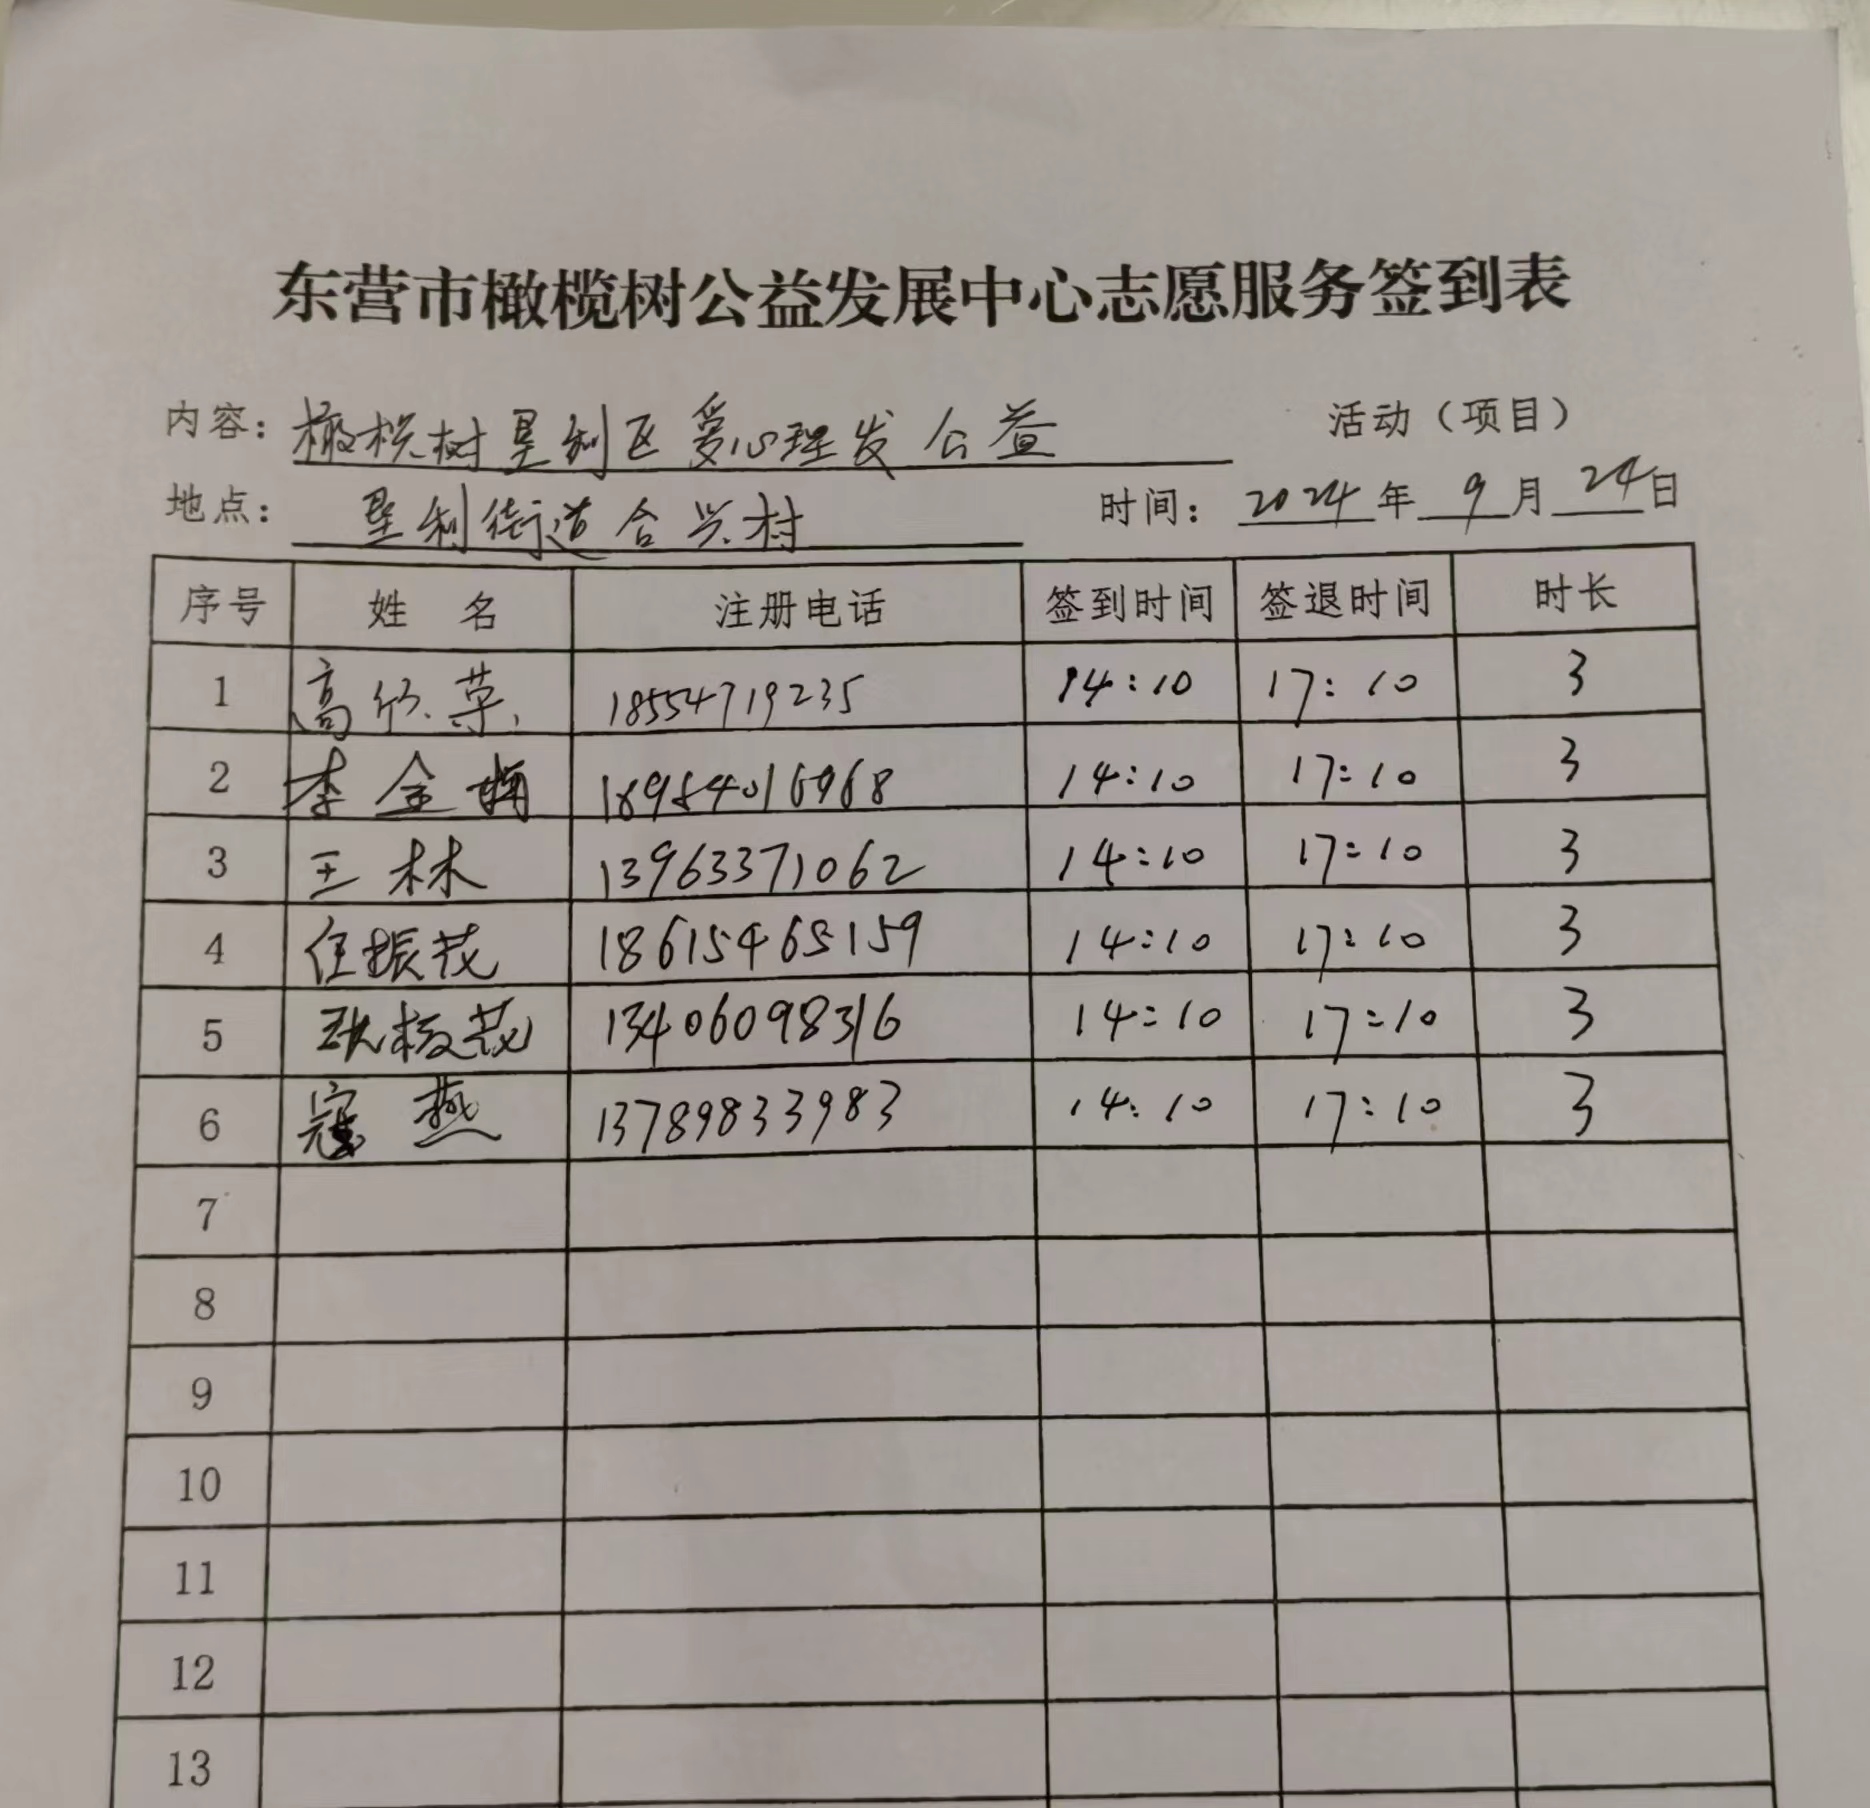 东营市橄榄树公益发展中心志愿服务签到表
内容: 橄榄树垦利区爱心理发公益 活动（项目）
地点: 垦利街道合兴村 时间: 2024年 9月 24日
序号 姓名 注册电话 签到时间 签退时间 时长
1 高欣荣 18554719235 14:10 17:10 3
2 李金梅 14:10 17:10 3
3 王林 13963371062 14:10 17:10 3
4 任振花 18615465159 14:10 17:10 3
5 13406098316 14:10 17:10 3
6 寇燕 13789833983 14:10 17:10 3
7
8
9
10
11
12
13